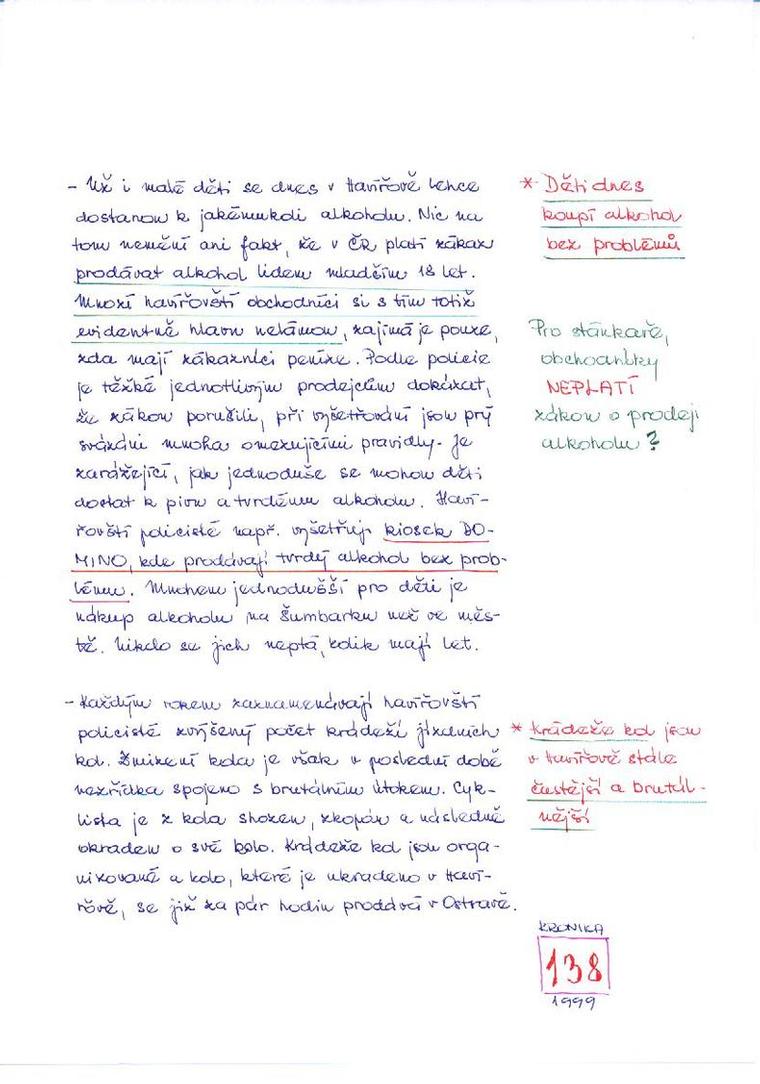 - Už i malé děti se dnes v Havířově lehce
dostanou k jakémukoli alkoholu. Nic na
tom nemění ani fakt, že v ČR platí zákaz
prodávat alkohol lidem mladším 18 let.
Mnozí havířovští obchodníci si s tím totiž
evidentně hlavu nelámou, zajímá je pouze,
zda mají zákazníci peníze. Podle policie
je těžké jednotlivým prodejcům dokázat,
že zákon porušili, při vyšetřování jsou prý
svázáni mnoha omezujícími pravidly. Je
zarážející, jak jednoduše se mohou děti
dostat k pivu a tvrdému alkoholu. Haví-
řovští policisté např. vyšetřují kiosek DO-
MINO, kde prodávají tvrdý alkohol bez prob-
lému. Mnohem jednodušší pro děti je
nákup alkoholu na Šumbarku než ve měs-
tě. Nikdo se jich neptá, kolik mají let.
* Děti dnes
koupí alkohol
bez problémů
Pro stánkaře,
obchodníky
NEPLATÍ
zákon o prodeji
alkoholu ?
- Každým rokem zaznamenávají havířovští
policisté zvýšený počet krádeží jízdních
kol. Zmizení kola je však v poslední době
nezřídka spojeno s brutálním útokem. Cyk-
lista je z kola shozen, zkopán a následně
okraden o své kolo. Krádeže kol jsou orga-
nizované a kolo, které je ukradeno v Haví-
řově, se již za pár hodin prodává v Ostravě.
* Krádeže kol jsou
v Havířově stále
častější a brutál-
nější
KRONIKA
138
1999